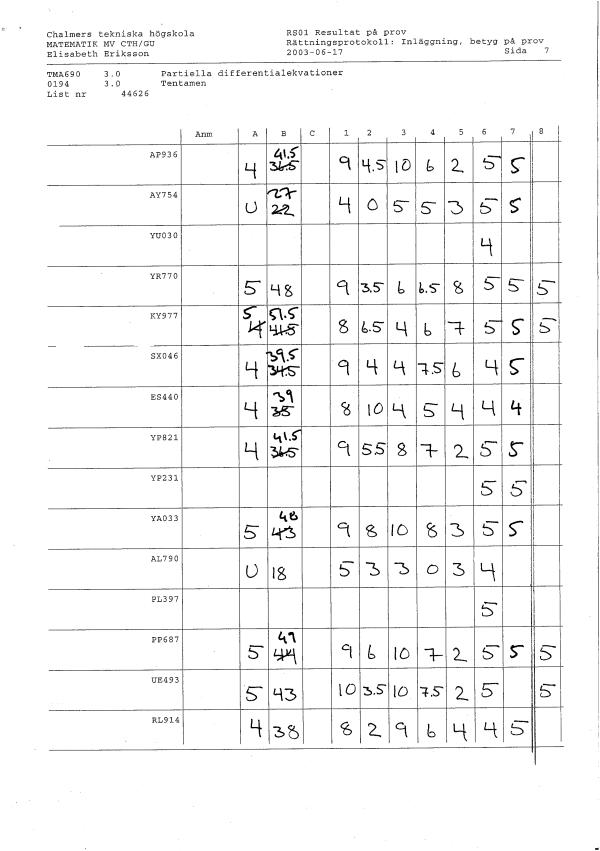 Chalmers tekniska högskola RS01 Resultat på prov
MATEMATIK MV CTH/GU Rättningsprotokoll: Inläggning, betyg på prov
Elisabeth Eriksson 2003-06-17 Sida 7
TMA690 3.0 Partiella differentialekvationer
0194 3.0 Tentamen
List nr 44626
Anm A B C 1 2 3 4 5 6 7 8
AP936 4 41.5 36.5 9 4.5 10 6 2 5 5
AY754 U 27 22 4 0 5 5 3 5 5
YU030 4
YR770 5 48 9 3.5 6 6.5 8 5 5 5
KY977 5 4 51.5 41.5 8 6.5 4 6 7 5 5 5
SX046 4 39.5 34.5 9 4 4 7.5 6 4 5
ES440 4 39 35 8 10 4 5 4 4 4
YP821 4 41.5 36.5 9 5.5 8 7 2 5 5
YP231 5 5
YA033 5 48 43 9 8 10 8 3 5 5
AL790 U 18 5 3 3 0 3 4
PL397 5
PP687 5 49 44 9 6 10 7 2 5 5 5
UE493 5 43 10 3.5 10 7.5 2 5 5
RL914 4 38 8 2 9 6 4 4 5